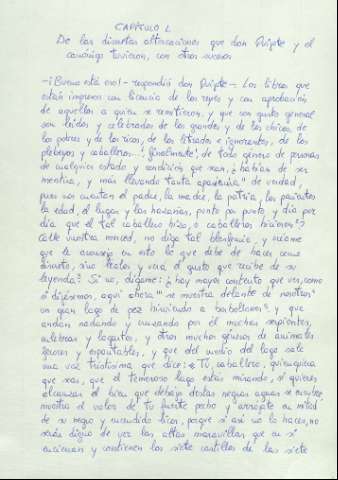 CAPÍTULO L
De las discretas altercaciones que don Quijote y el
canónigo tuvieron, con otros sucesos
-¡Bueno está eso! - respondió don Quijote -. Los libros que
están impresos con licencia de los reyes y con aprobación
de aquellos a quien se remitieron, y que con gusto general
son leídos y celebrados de los grandes y de los chicos, de
los pobres y de los ricos, de los letrados e ignorantes, de los
plebeyos y caballeros..., finalmente, de todo género de personas
de cualquier estado y condición que sean, ¿habían de ser
mentira, y más llevando tanta apariencia de verdad,
pues nos cuentan el padre, la madre, la patria, los parientes,
la edad, el lugar y las hazañas, punto por punto y día por
día, que el tal caballero hizo, o caballeros hicieron?
Calle vuestra merced, no diga tal blasfemia, y créame
que le aconsejo en esto lo que debe de hacer como
discreto, sino léalos y verá el gusto que recibe de su
leyenda. Si no, dígame: ¿hay mayor contento que ver, como
si dijésemos, aquí ahora se muestra delante de nosotros
un gran lago de pez hirviendo a borbollones, y que
andan nadando y cruzando por él muchas serpientes,
culebras y lagartos, y otros muchos géneros de animales
feroces y espantables, y que del medio del lago sale
una voz tristísima que dice: «Tú, caballero, quienquiera
que seas, que el temeroso lago estás mirando, si quieres
alcanzar el bien que debajo destas negras aguas se encubre,
muestra el valor de tu fuerte pecho y arrójate en mitad
de su negro y encendido licor, porque si así no lo haces, no
serás digno de ver las altas maravillas que en sí
encierran y contienen los siete castillos de las siete